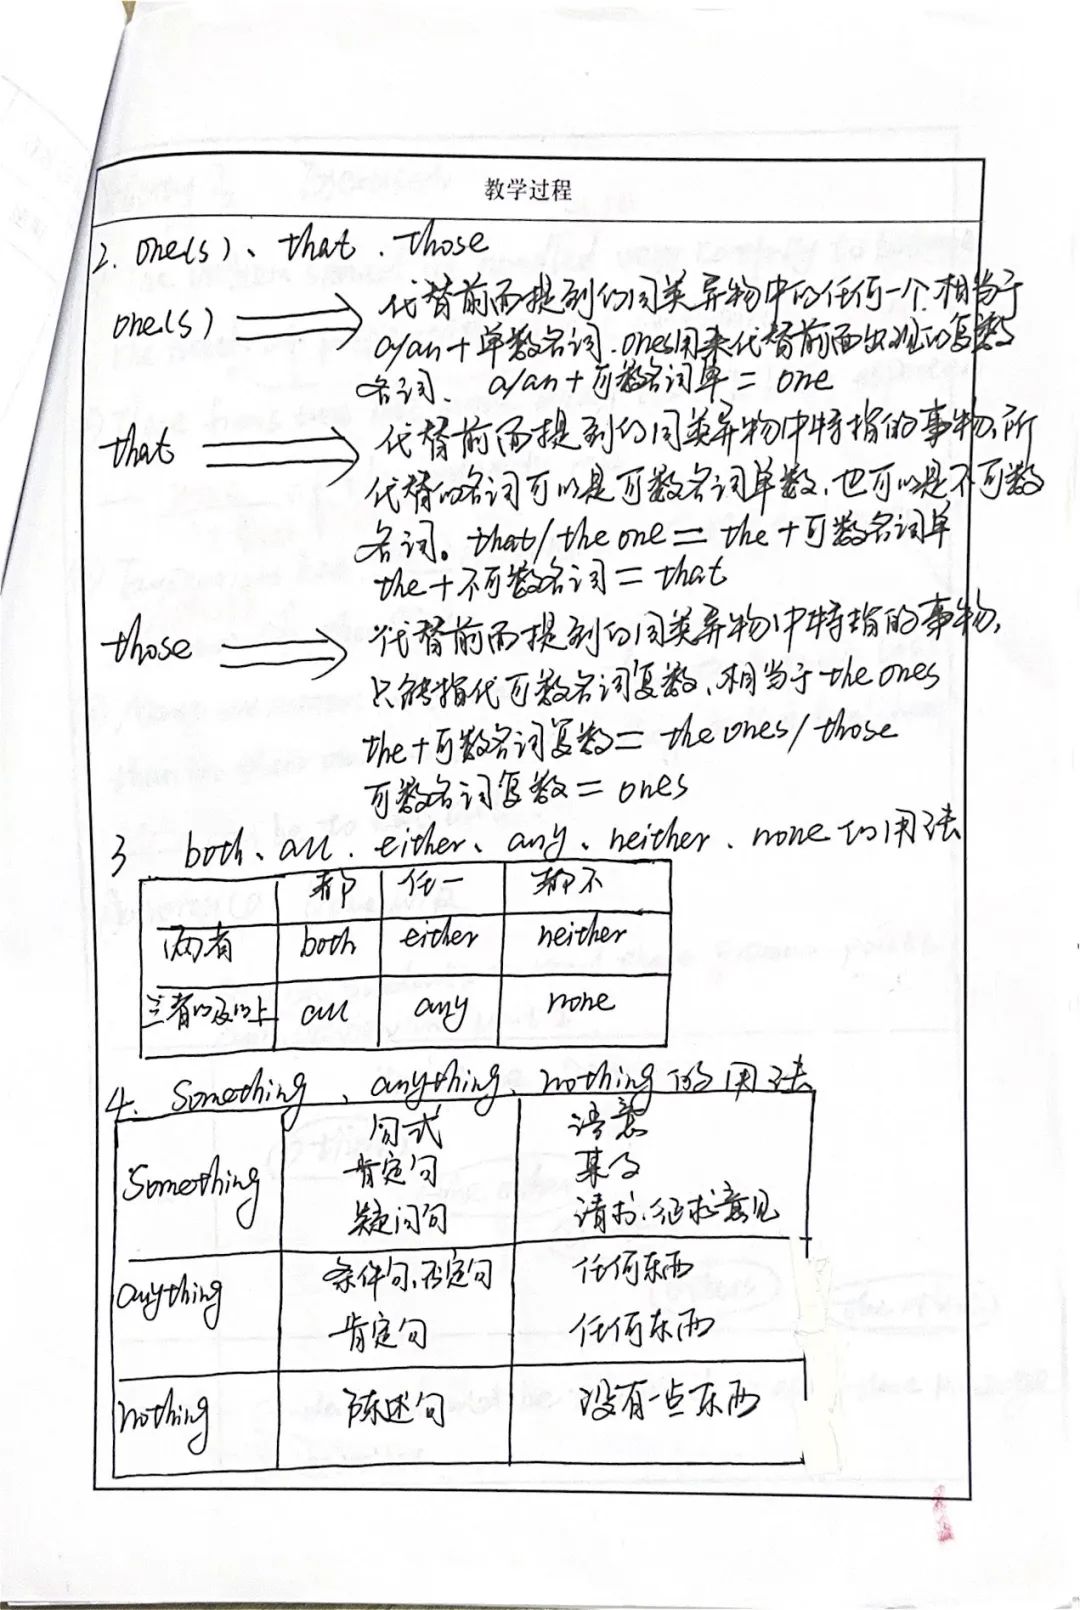 教学过程
2. one(s)、that、those
one(s) 代替前面提到的同类异物中的任何一个.相当于
a/an+单数名词.ones用来代替前面出现的复数
名词、 a/an+可数名词单=one
that 代替前面提到的同类异物中特指的事物,所
代替的名词可以是可数名词单数,也可以是不可数
名词。that/the one=the+可数名词单
the+不可数名词=that
those 代替前面提到的同类异物中特指的事物,
只能指代可数名词复数,相当于the ones
the+可数名词复数=the ones/those
可数名词复数=ones
3 both、all、either、any、neither、none的用法
都 任一 都不
两者 both either neither
三者以及以上 all any none
4. Something、anything、nothing的用法
句式 语意
Something 肯定句 某
疑问句 请求、征求意见
anything 条件句、否定句 任何东西
肯定句 任何东西
nothing 陈述句 没有一点东西